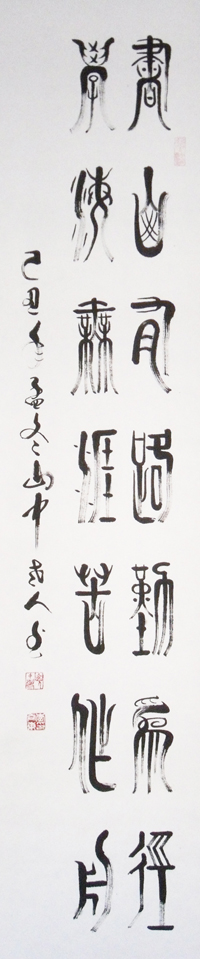 書山有路勤為徑
學海無涯苦作舟
己丑年孟冬山中老人書